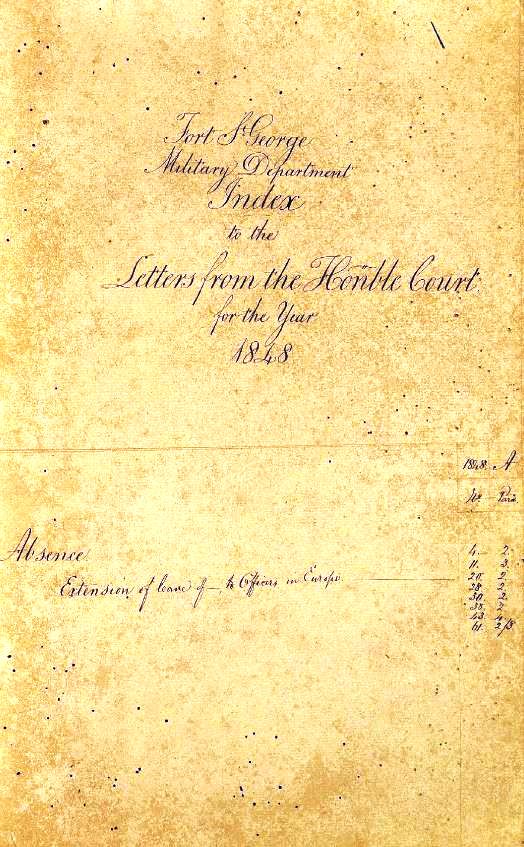 Fort St George
Military Department
Index
to the
Letters from the Honble Court
for the Year
1848
1848. A
No. Para
Absence
Extension of leave of — to Officers in Europe
4. 2.
11. 3.
20. 2.
28. 2.
30. 2.
38. 2.
43. 4.
61. 2/3.